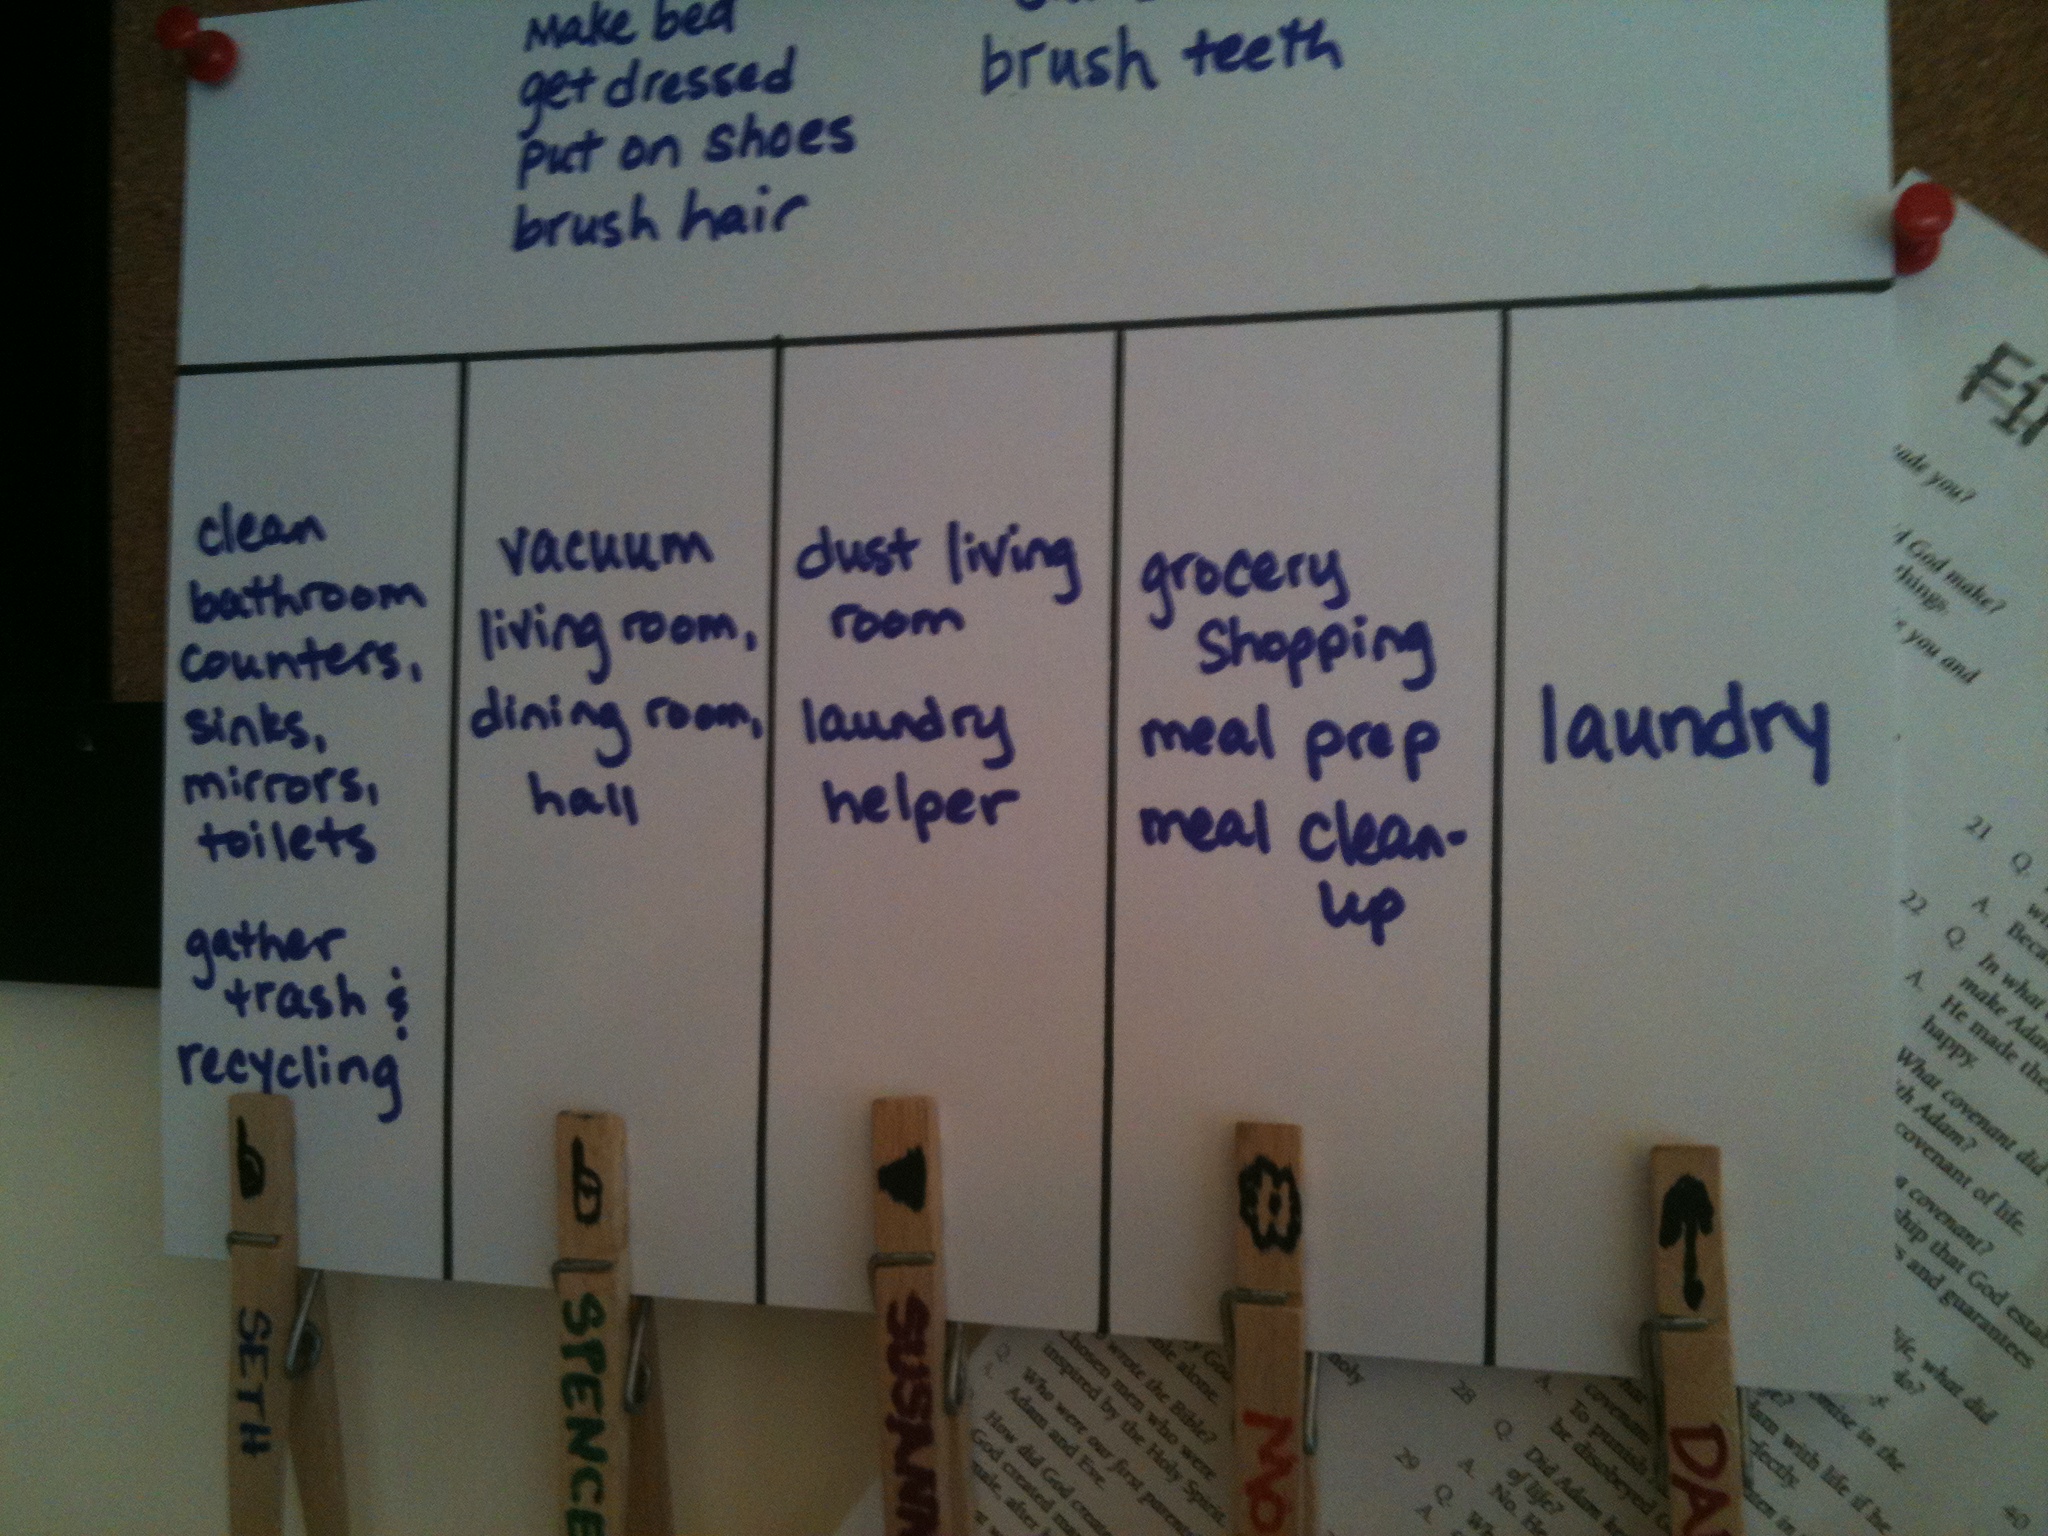 Make bed
get dressed
put on shoes
brush hair
brush teeth
clean
bathroom
counters,
sinks,
mirrors,
toilets
gather
trash &
recycling
vacuum
living room,
dining room,
hall
dust living
room
laundry
helper
grocery
shopping
meal prep
meal clean-
up
laundry
SETH
SPENCE
SUSANN
MO
DA
Fi
ade you?
God make?
things.
you and
21 Q.
A. Beca
22 Q. In what
make Adam
A. He made the
happy.
What covenant did
th Adam?
covenant of life.
a covenant?
ship that God estab
s and guarantees
life, what did
do?
wrote the Bible?
Chosen men who were
inspired by the Holy Spirit.
Q. Who were our first parents
A. Adam and Eve.
How did God create
God created
male, after
holy
28 Q.
A.
covenant
To punish
he disobeyed
29 Q. Did Adam
of life?
A. No. He
Q.
A.
omise in the
dam with life if he
rfectly.
40